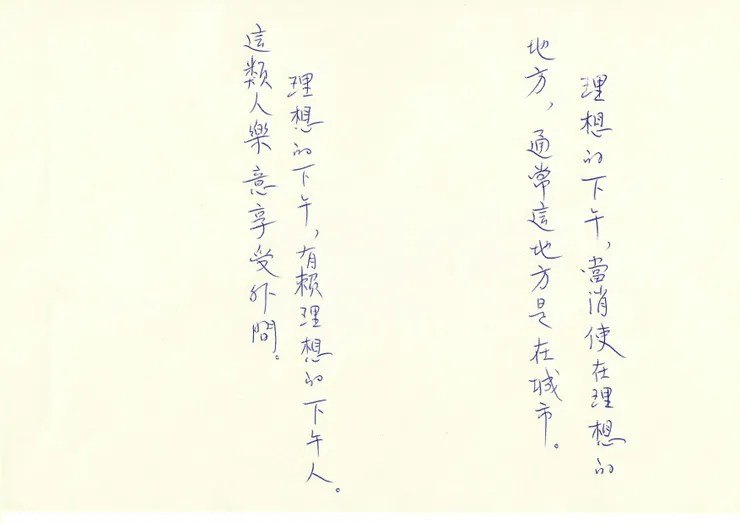 理想的下午,當消使在理想的
地方,通常這地方是在城市。
理想的下午,有賴理想的下午人。
這類人樂意享受外間。